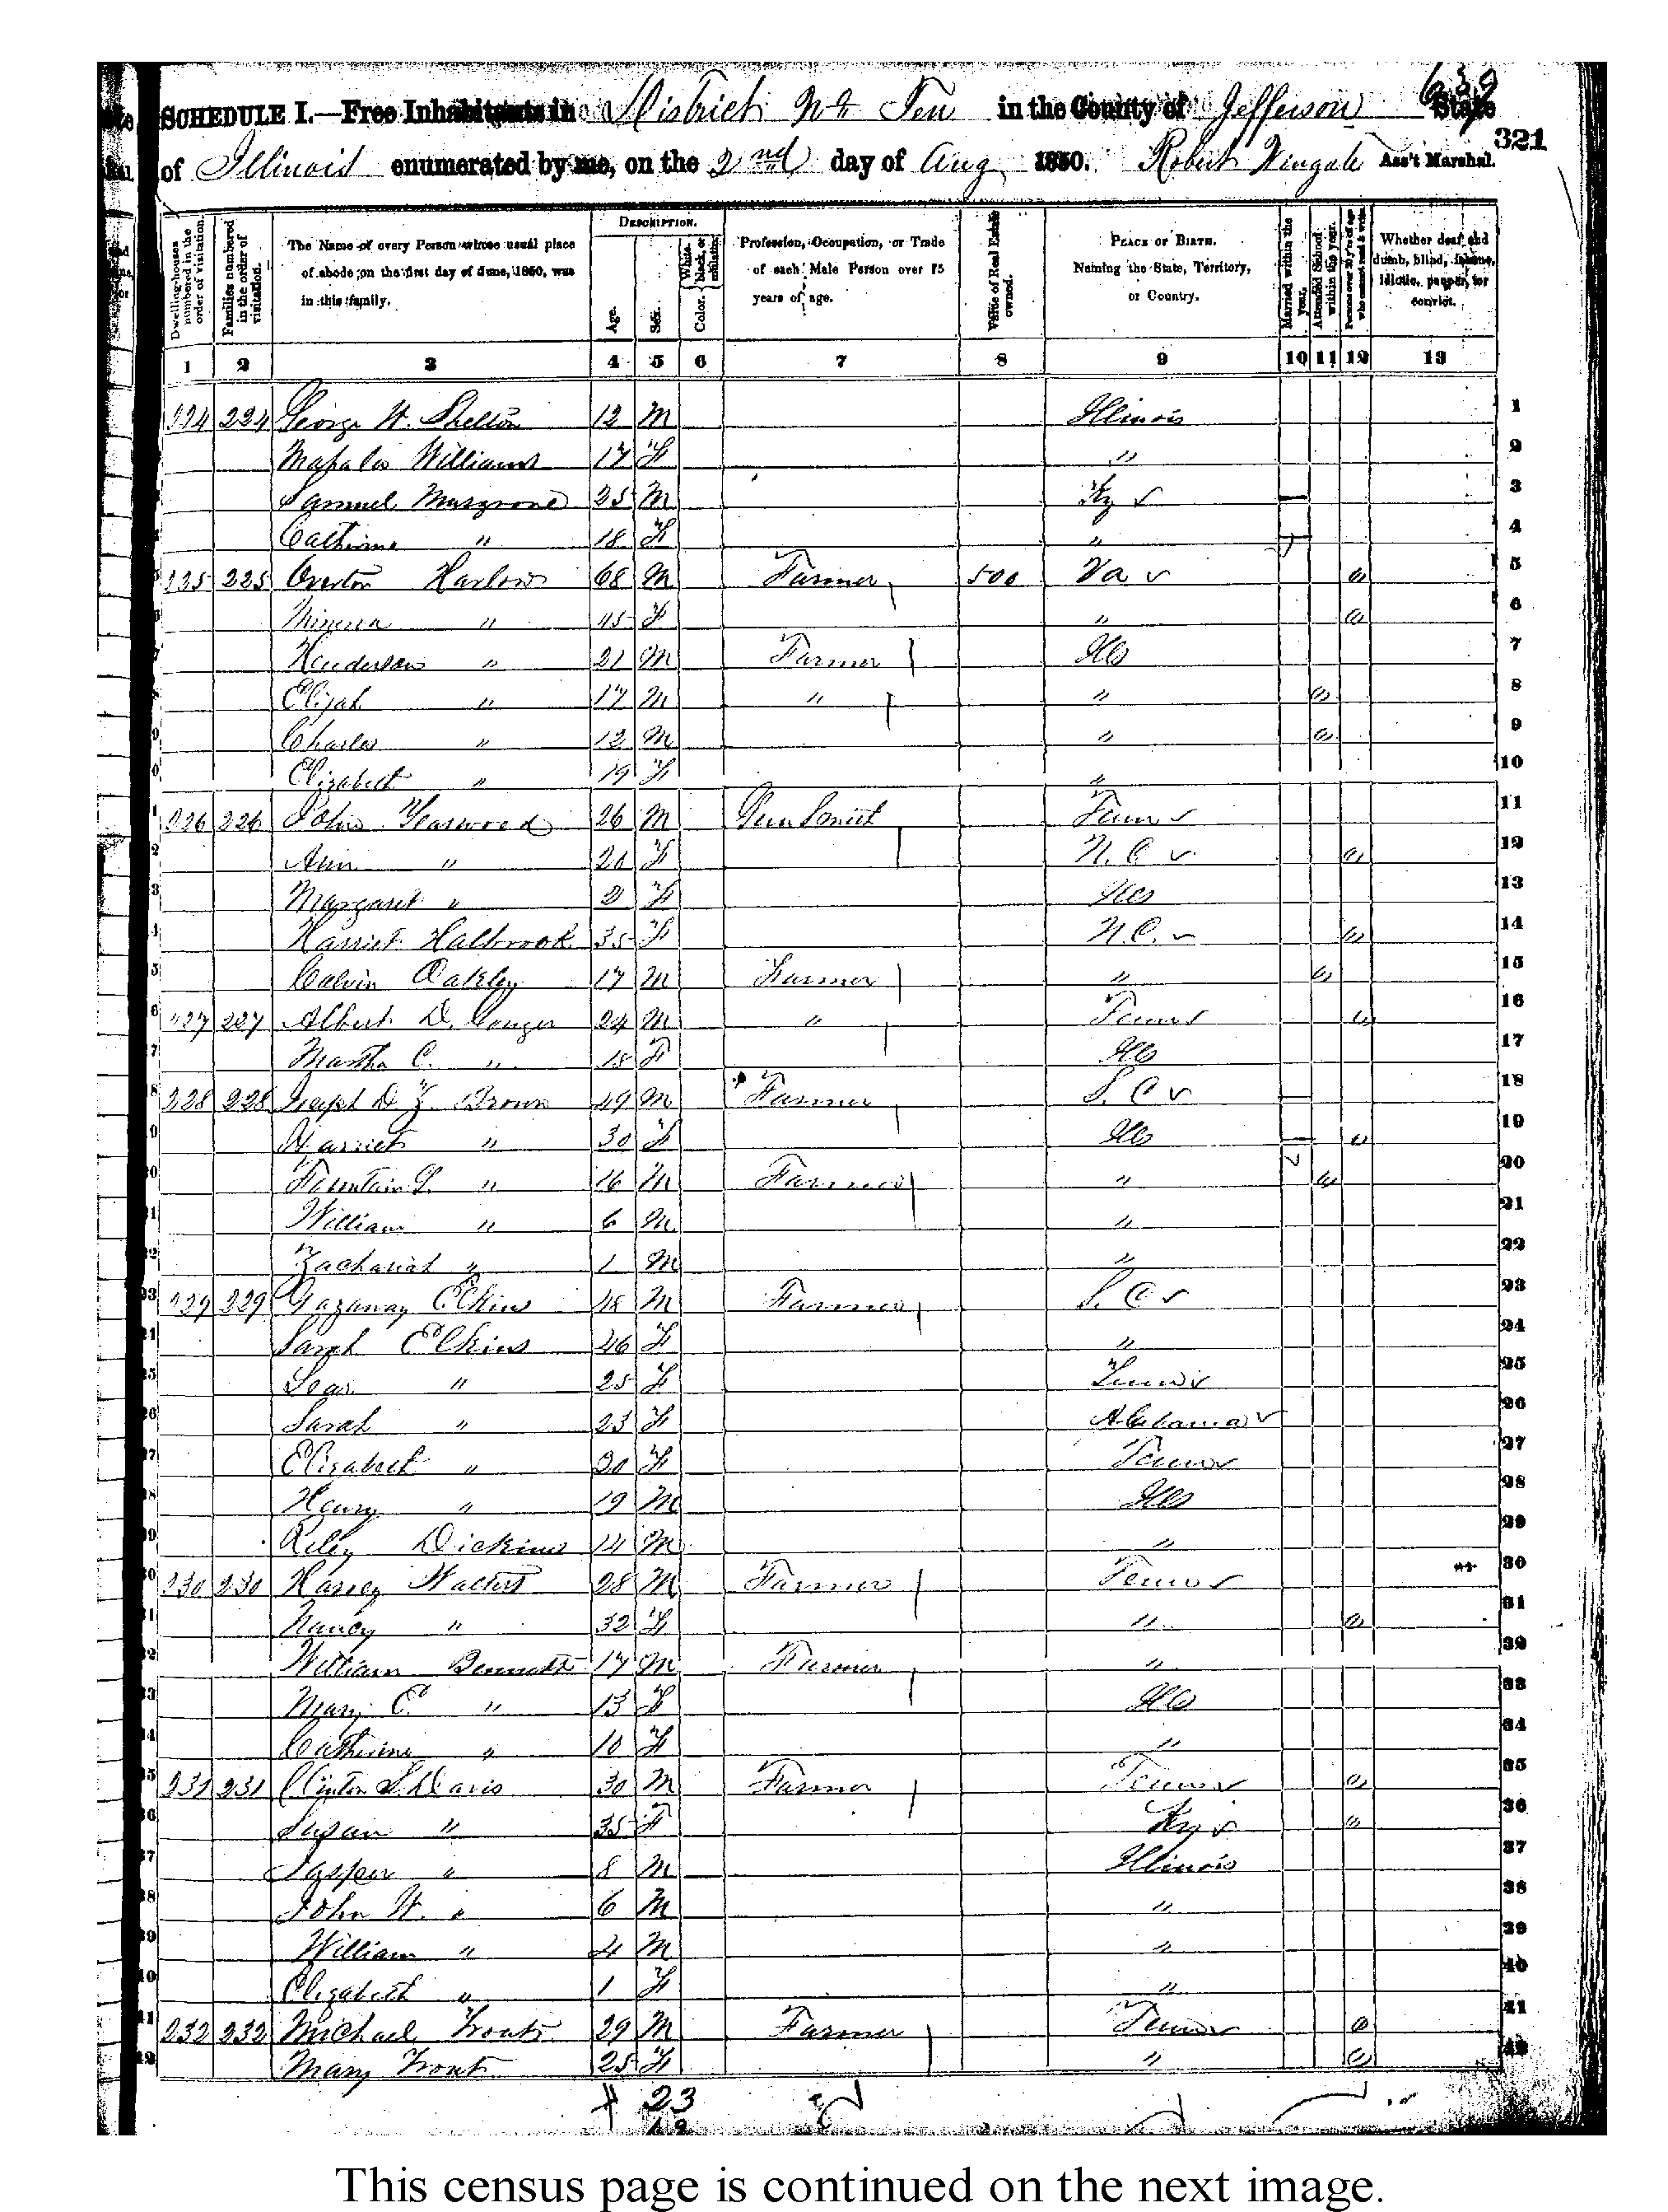 639
SCHEDULE I.—Free Inhabitants in District No Ten in the County of Jefferson State
321
of Illinois enumerated by me, on the 2nd day of Aug 1850. Robert Wingate Ass't Marshal.
Dwelling-houses numbered in the order of visitation.
Families numbered in the order of visitation.
The Name of every Person whose usual place of abode on the first day of June, 1850, was in this family.
DESCRIPTION.
Age.
Sex.
Color. White, black, or mulatto.
Profession, Occupation, or Trade of each Male Person over 15 years of age.
Value of Real Estate owned.
PLACE OF BIRTH. Naming the State, Territory, or Country.
Married within the year.
Attended School within the year.
Persons over 20 y'rs of age who cannot read & write.
Whether deaf and dumb, blind, insane, idiotic, pauper, or convict.
1 2 3 4 5 6 7 8 9 10 11 12 13
224 224 George W. Shelton 12 M Illinois 1
Mahala Williams 17 F " 2
Samuel Musgrove 25 M Ky 3
Catherine " 18 F " 4
225 225 Overton Harlow 68 M Farmer 500 Va 5
Minerva " 45 F " 6
Henderson " 21 M Farmer Ills 7
Elijah " 17 M " " 8
Charles " 12 M " 9
Elizabeth " 19 F " 10
226 226 John Yearwood 26 M Gun Smith Tenn 11
Ann " 21 F N. C 12
Margaret " 2 F Ills 13
Harriet Halbrook 35 F N. C. 14
Calvin Oakley 17 M Farmer " 15
227 227 Albert D. Conger 24 M " Tenn 16
Martha C. " 18 F Ills 17
228 228 Joseph D. Z. Brown 49 M Farmer S. C 18
Harriet " 30 F Ills 19
Fountain " 16 M Farmer " 20
William " 6 M " 21
Zachariah " 1 M " 22
229 229 Gazaway Elkins 48 M Farmer S. C 23
Sarah Elkins 46 F " 24
" 25 F Tenn 25
Sarah " 23 F Alabama 26
Elizabeth " 20 F Tenn 27
Henry " 19 M Ills 28
Riley Dickins 14 M " 29
230 230 Harvey Walters 28 M Farmer Tenn 30
Nancy " 32 F " 31
William Bennett 17 M Farmer " 32
Mary E " 13 F Ills 33
Catherine " 10 F " 34
231 231 Clinton S. Davis 30 M Farmer Tenn 35
Susan " 35 F Ky 36
Jasper " 8 M Illinois 37
John W. " 6 M " 38
William " 4 M " 39
Elizabeth " 1 F " 40
232 232 Michael Fronts 29 M Farmer Tenn 41
Mary Fronts 25 F " 42
23
This census page is continued on the next image.